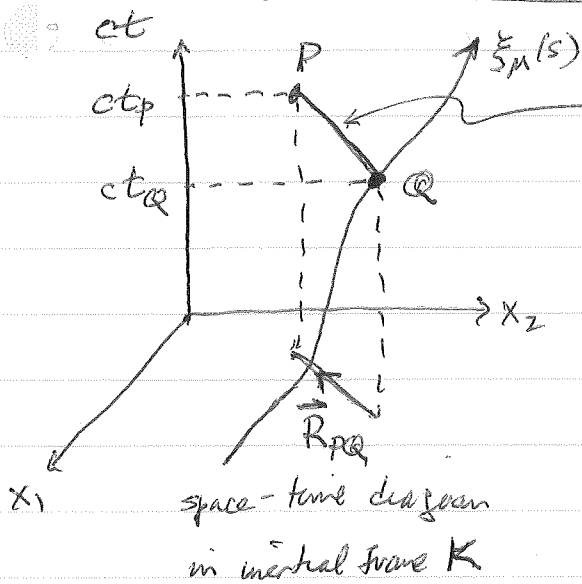 ct
P
ξμ(s)
ctP
ctQ
Q
x2
R⃗PQ
x1
space-time diagram
in inertial frame K